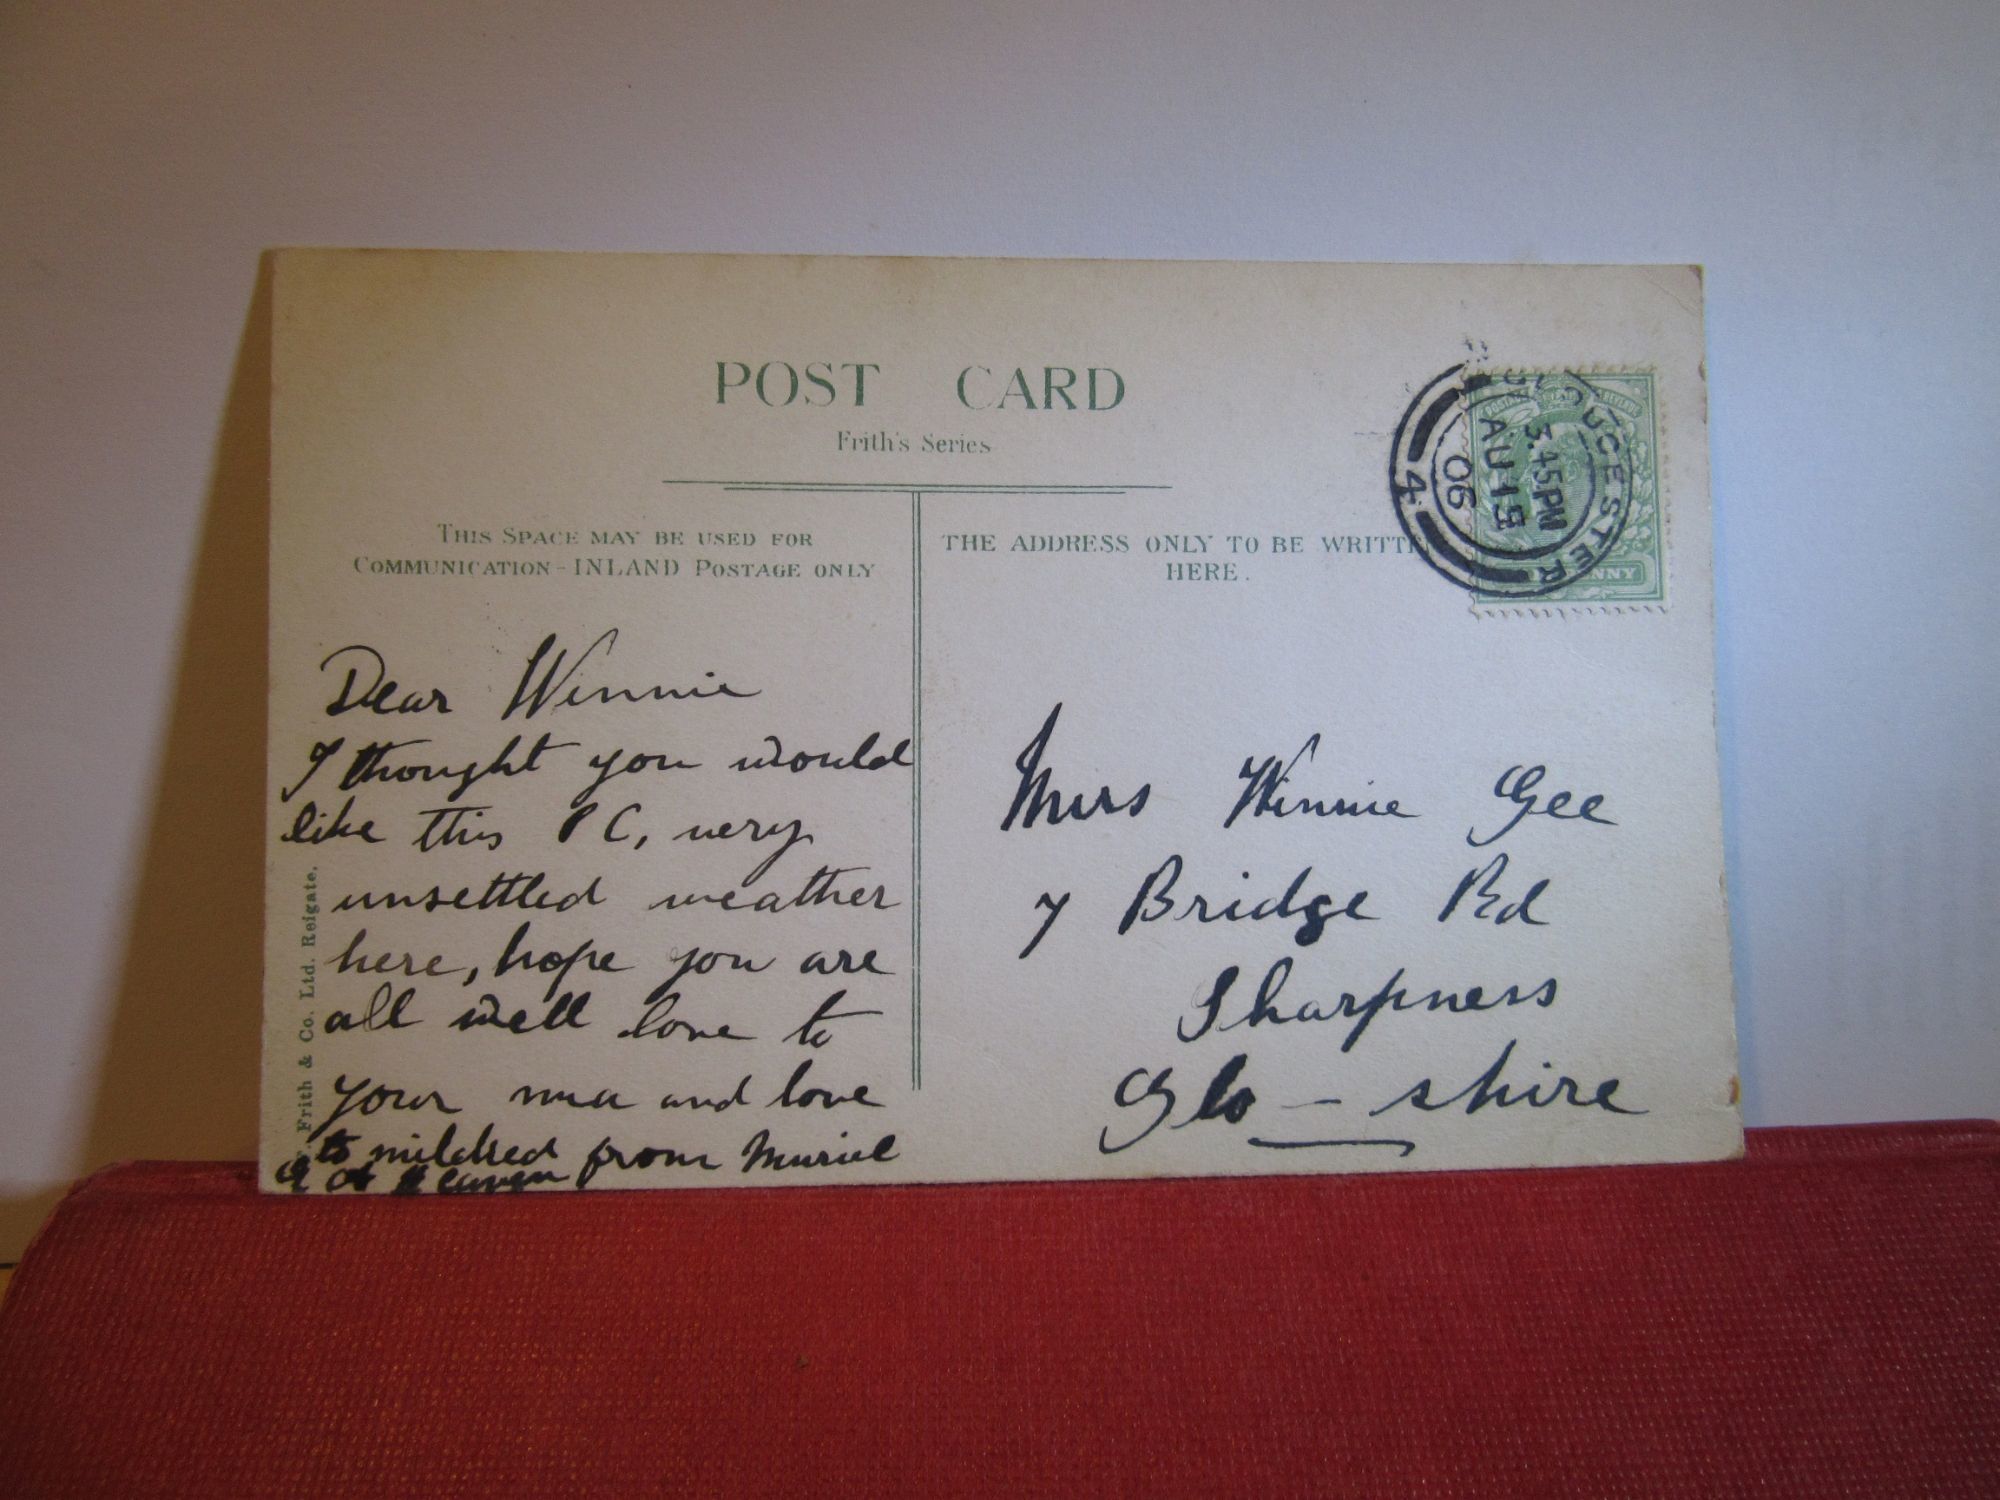 POST CARD
Frith's Series
THIS SPACE MAY BE USED FOR
COMMUNICATION - INLAND POSTAGE ONLY
THE ADDRESS ONLY TO BE WRITTEN
HERE.
GLOUCESTER
3.45PM
AU 19
06
4
Dear Winnie
I thought you would
like this PC, very
unsettled weather
here, hope you are
all well love to
your ma and love
to mildred from Muriel
Frith & Co. Ltd. Reigate.
Miss Winnie Gee
7 Bridge Rd
Sharpness
Glo - shire